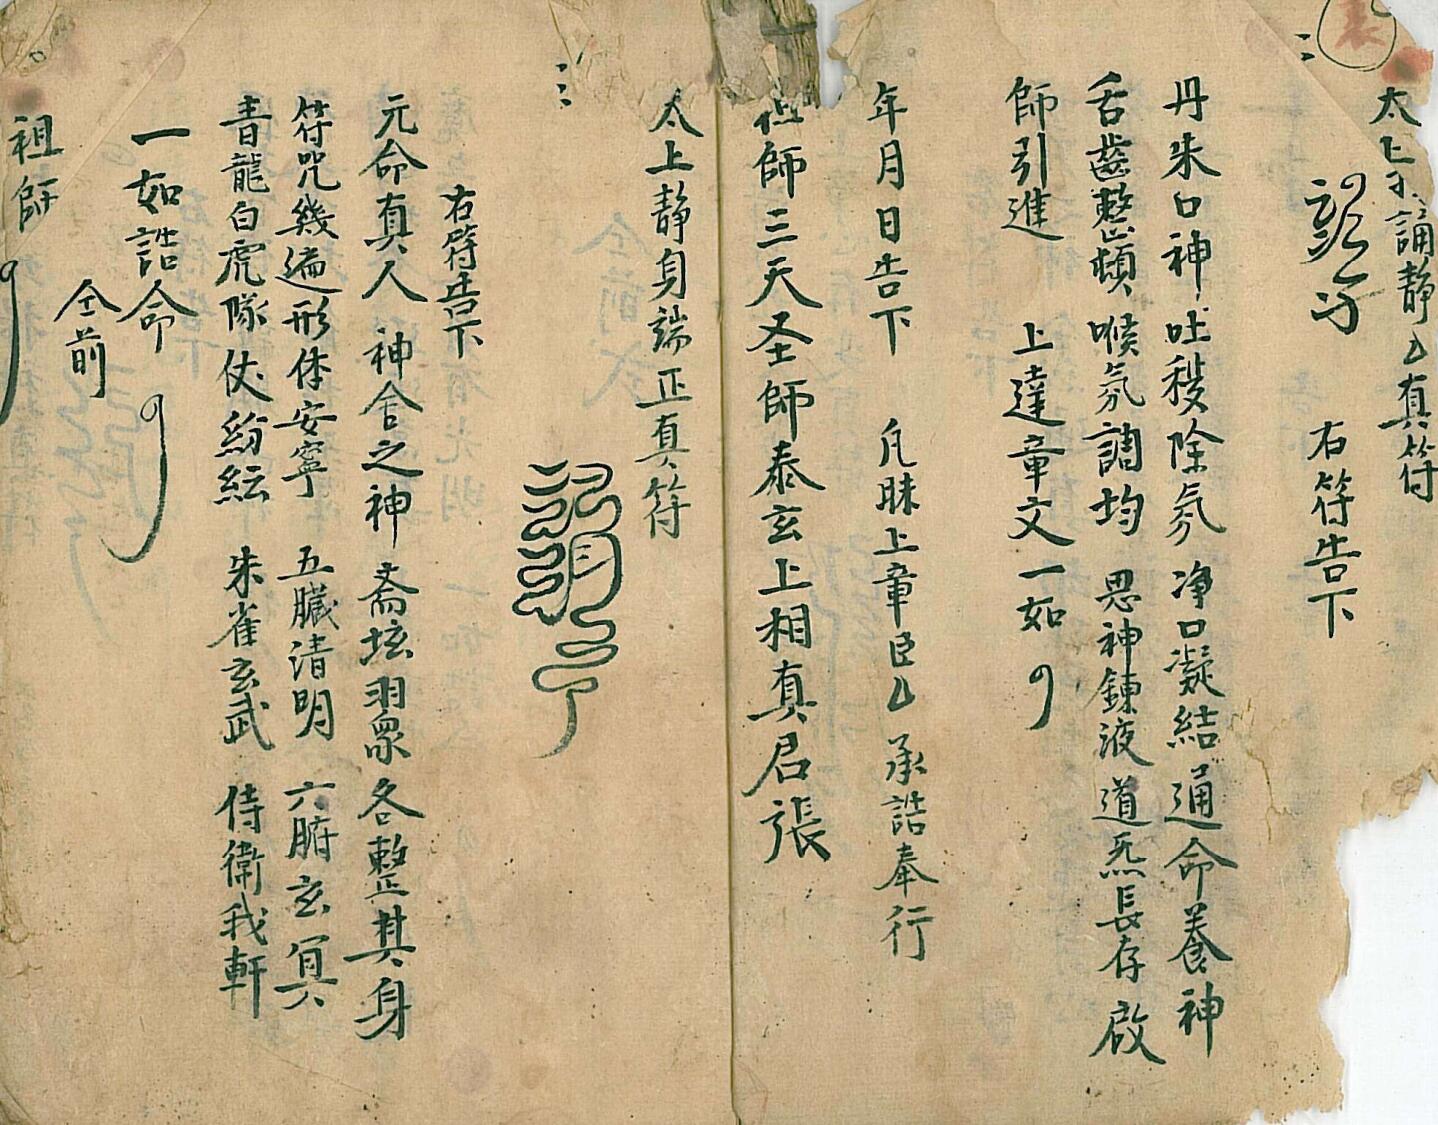 表
太上 誦静乚真符
右符告下
丹朱口神 吐穢除氛 净口凝結 通命養神
舌齒整頓 喉氛調均 思神鍊液 道炁長存 啟
師引進 上達章文 一如
年月日告下 凡昧上章臣乚承誥奉行
祖師三天圣師泰玄上相真君張
太上静身端正真符
右符告下
元命真人 神舍之神 斋坛羽眾 各整其身
符咒幾遍 形体安寧 五臟清明 六腑玄冥
青龍白虎 隊仗紛紜 朱雀玄武 侍衛我軒
一如誥命
仝前
祖師